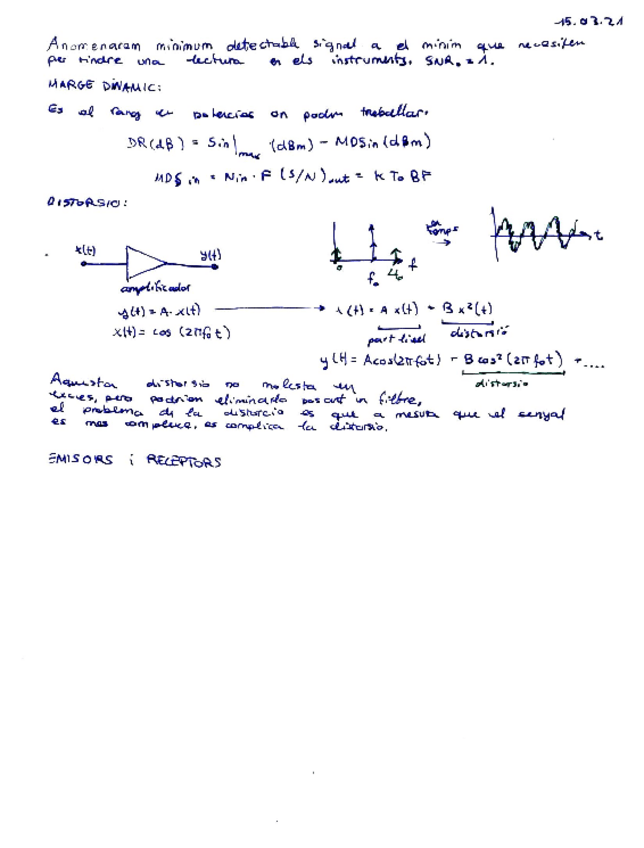 15.03.21
Anomenaram minimum detectable signal a el minim que necesiten
per tindre una lectura en els instruments. SNRo = 1.
MARGE DINAMIC:
Es el rang en potencies on podem treballar.
DR(dB) = Sin|max (dBm) - MDSin (dBm)
MDSin = Nin · F (S/N)out = K To BF
DISTORSIO:
x(t) y(t)
amplificador
fo f
en temps
t
y(t) = A · x(t)
x(t) = cos (2πfot)
y(t) = A x(t) + B x²(t)
part lineal distorsió
y(t) = Acos(2πfot) + B cos² (2πfot) + ....
distorsio
Aquesta distorsio no molesta en
veces, pero podrien eliminarla posant un filtre,
el problema de la distorcio es que a mesura que el senyal
es mes complexe, es complica la distorsio.
EMISORS i RECEPTORS